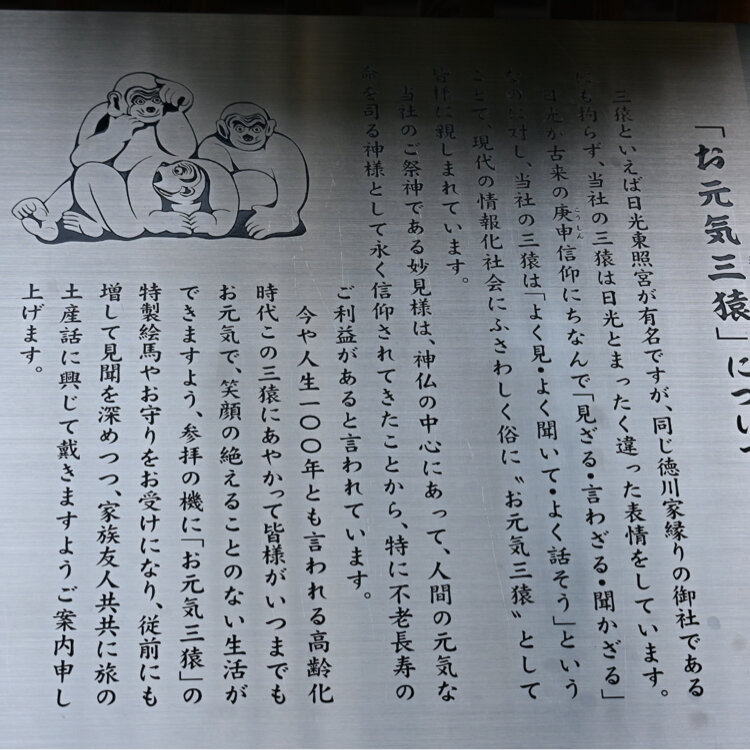 「お元気三猿」につい
三猿といえば日光東照宮が有名ですが、同じ徳川家縁りの御社である
にも拘らず、当社の三猿は日光とまったく違った表情をしています。
日光が古来の庚申信仰にちなんで「見ざる・言わざる・聞かざる」
こうしん
なのに対し、当社の三猿は「よく見・よく聞いて・よく話そう」という
ことで、現代の情報化社会にふさわしく俗に〝お元気三猿〟として
皆様に親しまれています。
当社のご祭神である妙見様は、神仏の中心にあって、人間の元気な
命を司る神様として永く信仰されてきたことから、特に不老長寿の
ご利益があると言われています。
今や人生一〇〇年とも言われる高齢化
時代この三猿にあやかって皆様がいつまでも
お元気で、笑顔の絶えることのない生活が
できますよう、参拝の機に「お元気三猿」の
特製絵馬やお守りをお受けになり、従前にも
増して見聞を深めつつ、家族友人共共に旅の
土産話に興じて戴きますようご案内申し
上げます。